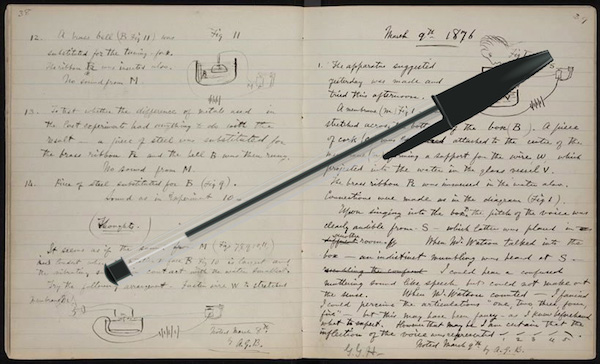 35
12. A brass bell (B Fig 11) was
substituted for the tuning fork.
The ribbon R was inverted also.
No sound from N
Fig 11
13. To test whether the difference of metals used in
the last experiments had anything to do with the
result — a piece of steel was substituted for
the brass ribbon R and the bell B was then rung.
No sound from N.
14. Piece of steel substituted for B (Fig 9).
Sound as in Experiment 10.
Thoughts.
It seems as if the
N (Fig 7, 8, 9
B Fig 10 is largest and
the vibrating
contact with the water smallest.
Try the following arrangement. Faster wire W to stretched
membrane
Noted March 9th
by A.G.B.
March 9th 1876
1. The apparatus suggested
yesterday was made and
tried this afternoon.
A membrane (m, Fig 1
stretched across
of the box B). A piece
of cork
attached to the center of the
a support for the wire W, which
projected into the water in the glass vessel V.
The brass ribbon R was immersed in the water also.
Connections were made as in the diagram (Fig 1).
Upon singing into the box, the pitch of the voice was
clearly audible from S — which latter was placed in
another room. When Mr. Watson talked into the
box — an indistinct mumbling was heard at S —
I could hear a confused
muttering sound like speech but could not make out
the sense. When Mr. Watson counted — I fancied
I could perceive the articulations "one, two, three, four,
five" — but this may have been fancy — as I knew beforehand
what to expect. However that may be I am certain that the
inflection of the voice was represented
1 2 3 4 5
Noted March 9th by A.G.B.